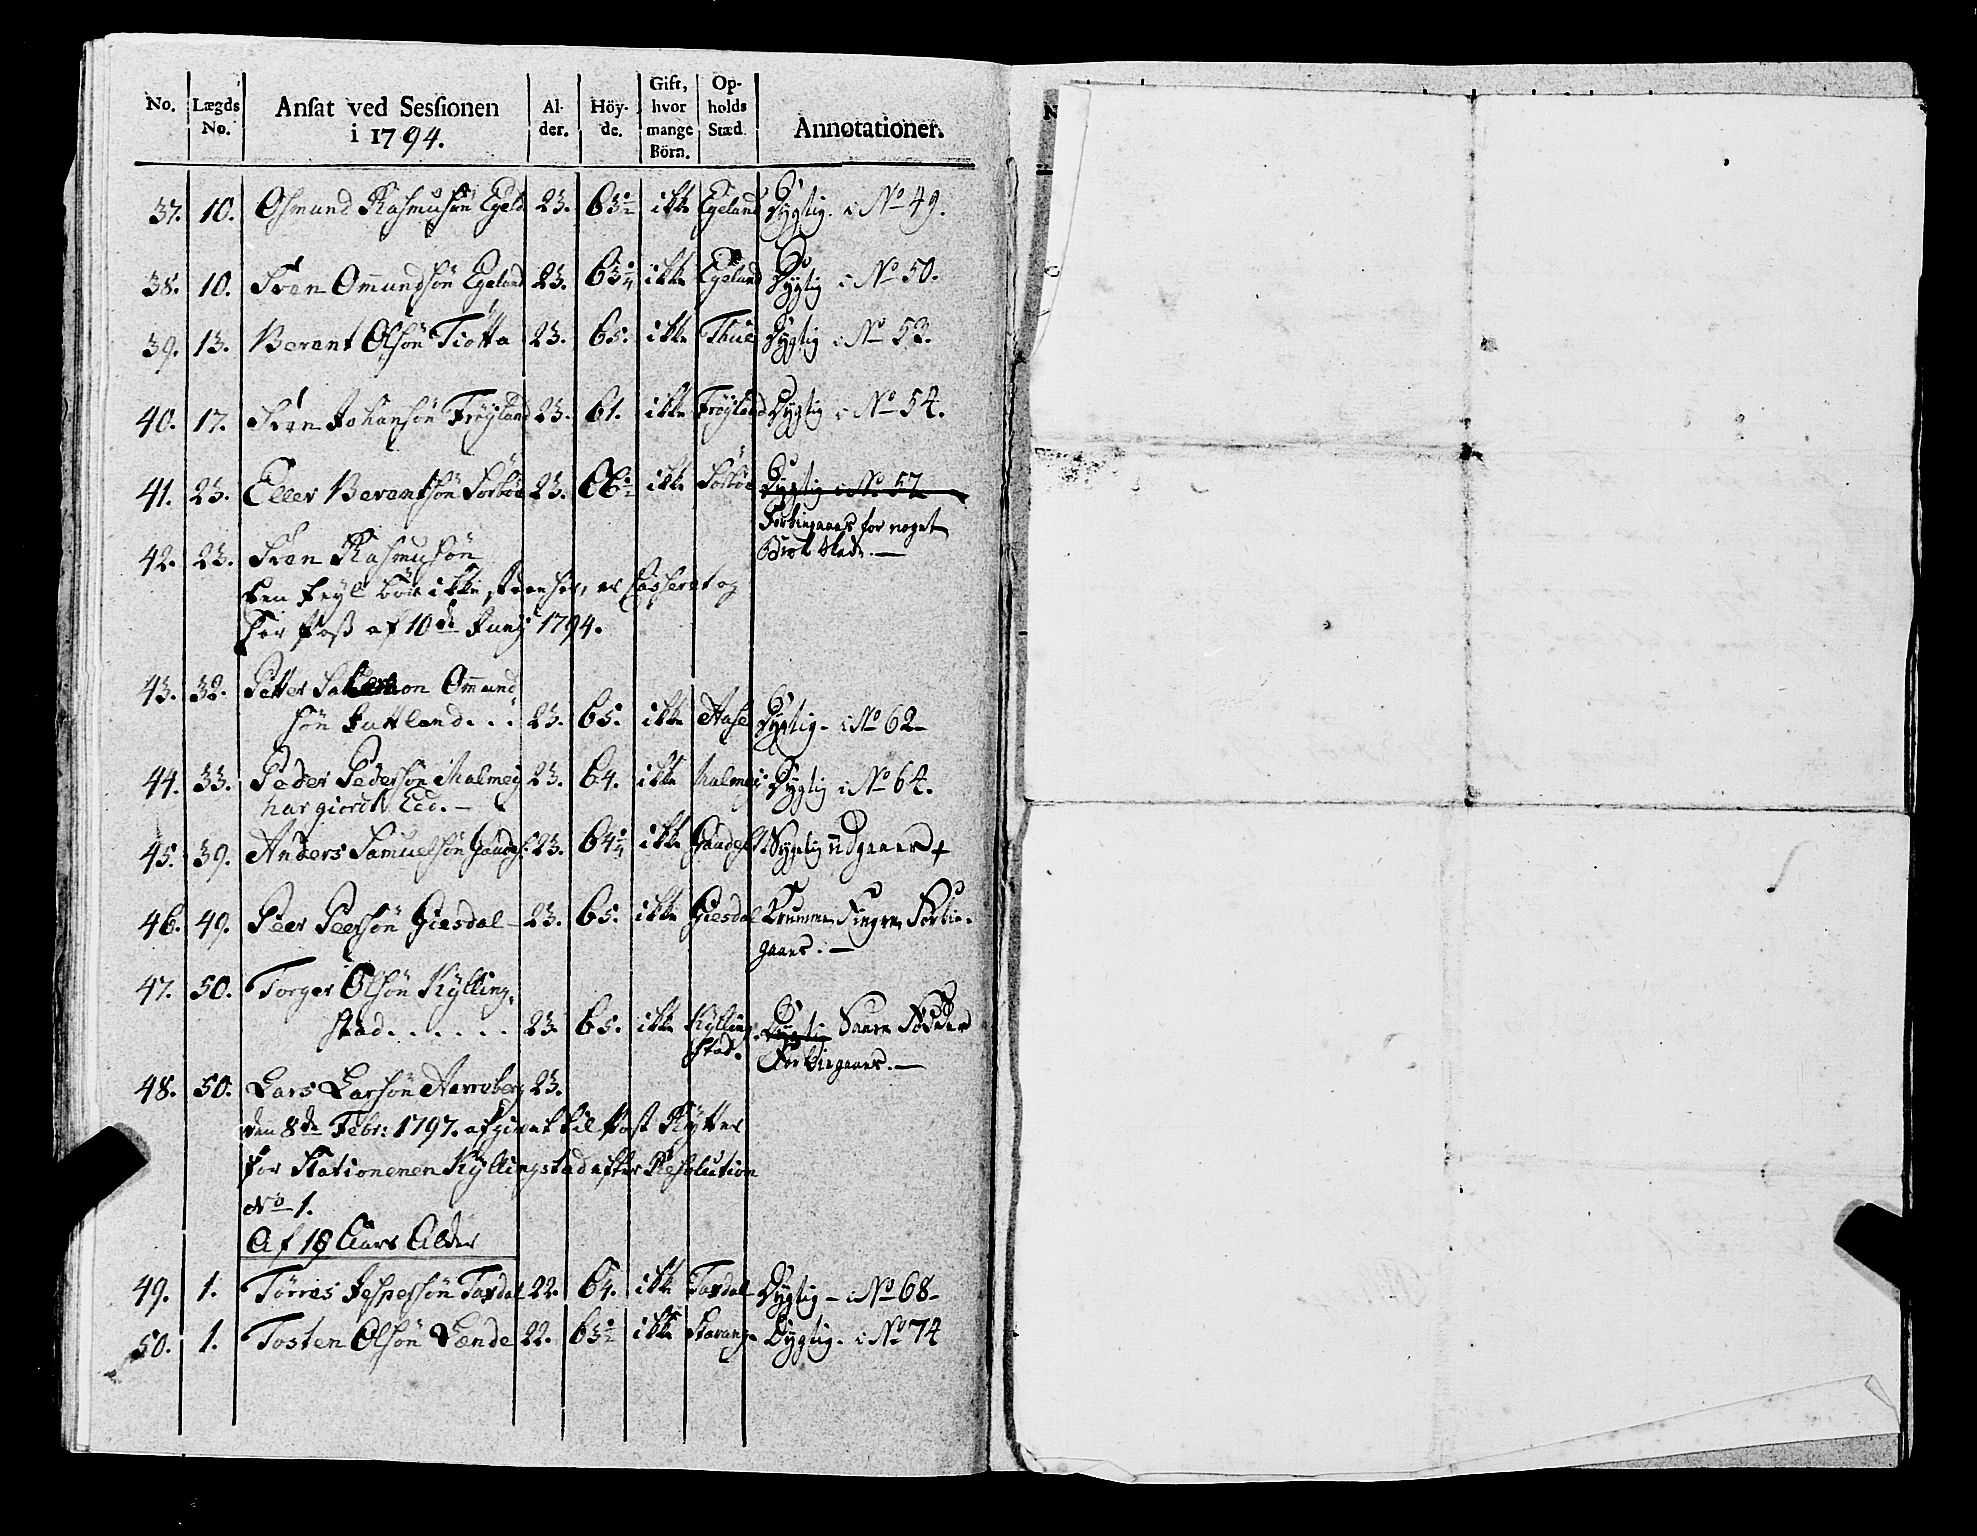 No. Lægds No. Ansat ved Sessionen i 1794. Al-der. Höy-de. Gift, hvor mange Börn. Op-holds Stæd. Annotationer.
37. 10. Osmund Rasmusön Egeld 23. 63 ikke Egeland Dygtig. i No 49.
38. 10. Sven Omundsön Egeland 23. 63 ikke Egeland Dygtig i No 50.
39. 13. Berent Olsön Tiötta 23. 65. ikke Thue Dygtig i No 53.
40. 17. Sven Johansön Fröyland 23. 61. ikke Fröyland Dygtig i No 54.
41. 23. Eller Berentsön Sörböe 23. ikke Sörböe Dygtig i No 57
Forbiegaaes for noget
42. 23. Sven Rasmusön
en feyl bör ikke staae her, er Casseret og
för Pass af 10de Junij 1794.
43. 32. Petter Salomon Omund
sön Jattland... 23. 65. ikke Aase Dygtig. i No 62
44. 33. Peder Pedersön Malmey 23. 64. ikke Malmey Dygtig i No 64.
har giordt Eed.
45. 39. Anders Samuelsön Gaudes: 23. 64 ikke Gaudes: Sygelig udgaaer +
46. 49. Peer Peersön Giesdal 23. 65. ikke Giesdal Krumme Fingre, Forbie-
gaaes.
47. 50. Torger Olsön Kylling,
stad...... 23. 65. ikke Kylling stad. Dygtig Saare Födder
Forbiegaaes.
48. 50. Lars Larsön Aarreberg 23.
den 8de Febr: 1797. afgivet til Post Rytter
for Stationenen Kyllingstad efter Resolution
No 1.
Af 16 Aars Alder
49. 1. Törres Jespersön Taxdal 22. 64. ikke Taxdal Dygtig - i No 68
50. 1. Tosten Olsön Lænde 22. 63 ikke Stavang: Dygtig. i No 74